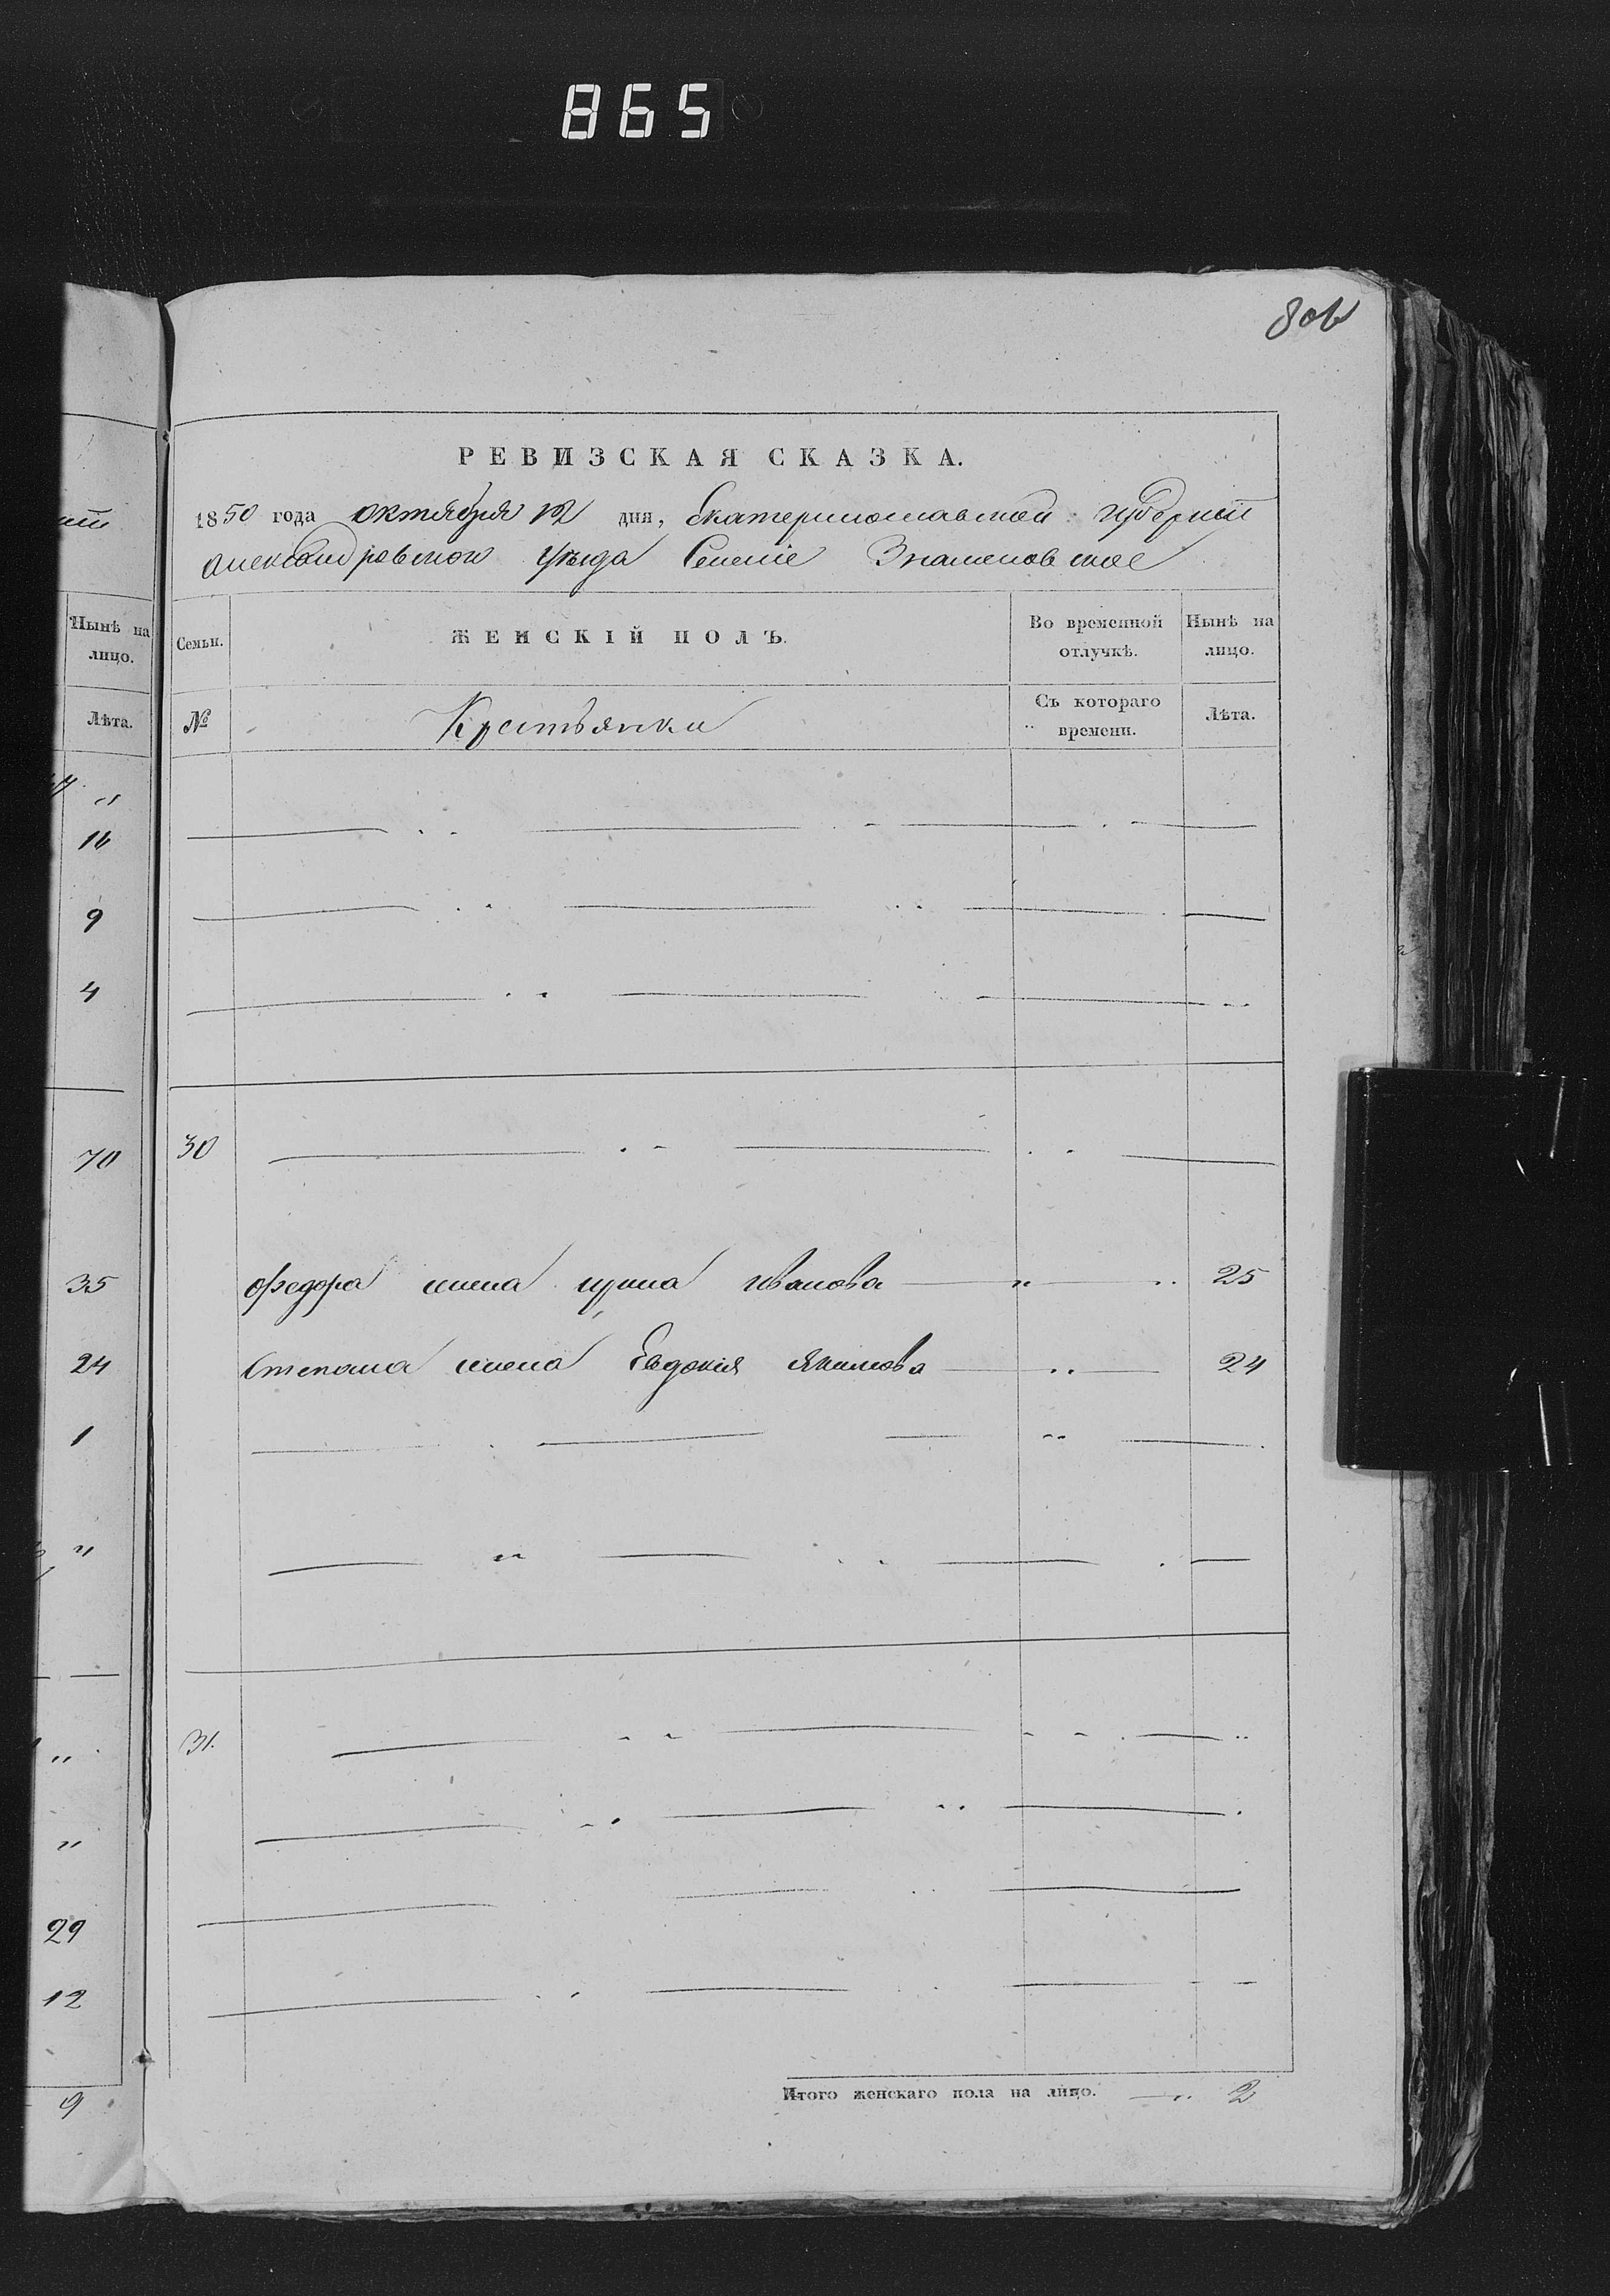 865
806
РЕВИЗСКАЯ СКАЗКА.
1850 года октября 12 дня, Екатеринославской губернии
Александровского уѣзда Селеніе Знаменовское
Нынѣ на лицо.
Лѣта.
Семьи.
ЖЕНСКІЙ ПОЛЪ.
Во временной отлучкѣ.
Нынѣ на лицо.
№
Крестьянки
Съ котораго времени.
Лѣта.
16
9
4
70
30
35
Федора жена Ирина Иванова 25
24
Степана жена Евдокия Якимова 24
1
31.
29
12
Итого женскаго пола на лицо. 2
9